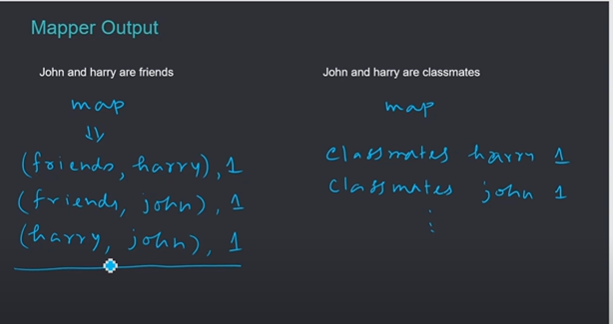 Mapper Output
John and harry are friends
map
(friends, harry), 1
(friends, john), 1
(harry, john), 1
John and harry are classmates
map
classmates harry 1
classmates john 1